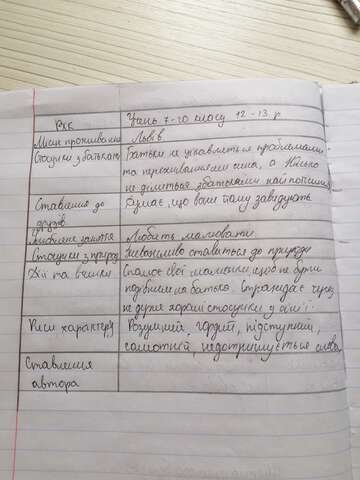 Вік
Учень 7-го класу 12-13 р
Місце проживання
Львів
Стосунки з батьками
Батьки не цікавляться проблемами
та переживаннями сина, а
не ділиться з батьками
Ставлення до
друзів
Думає, що вони йому завидують
Улюблене заняття
Любить малювати
Стосунки з природ
ставиться до природи
Дії та вчинки
Спалює свої малюнки, щоб не бути
подібним на батька. Страждає через
не дуже хороші стосунки у сім'ї.
Риси характеру
Розумний, гордий, підступний,
самотній, недотримується слова
Ставлення
автора